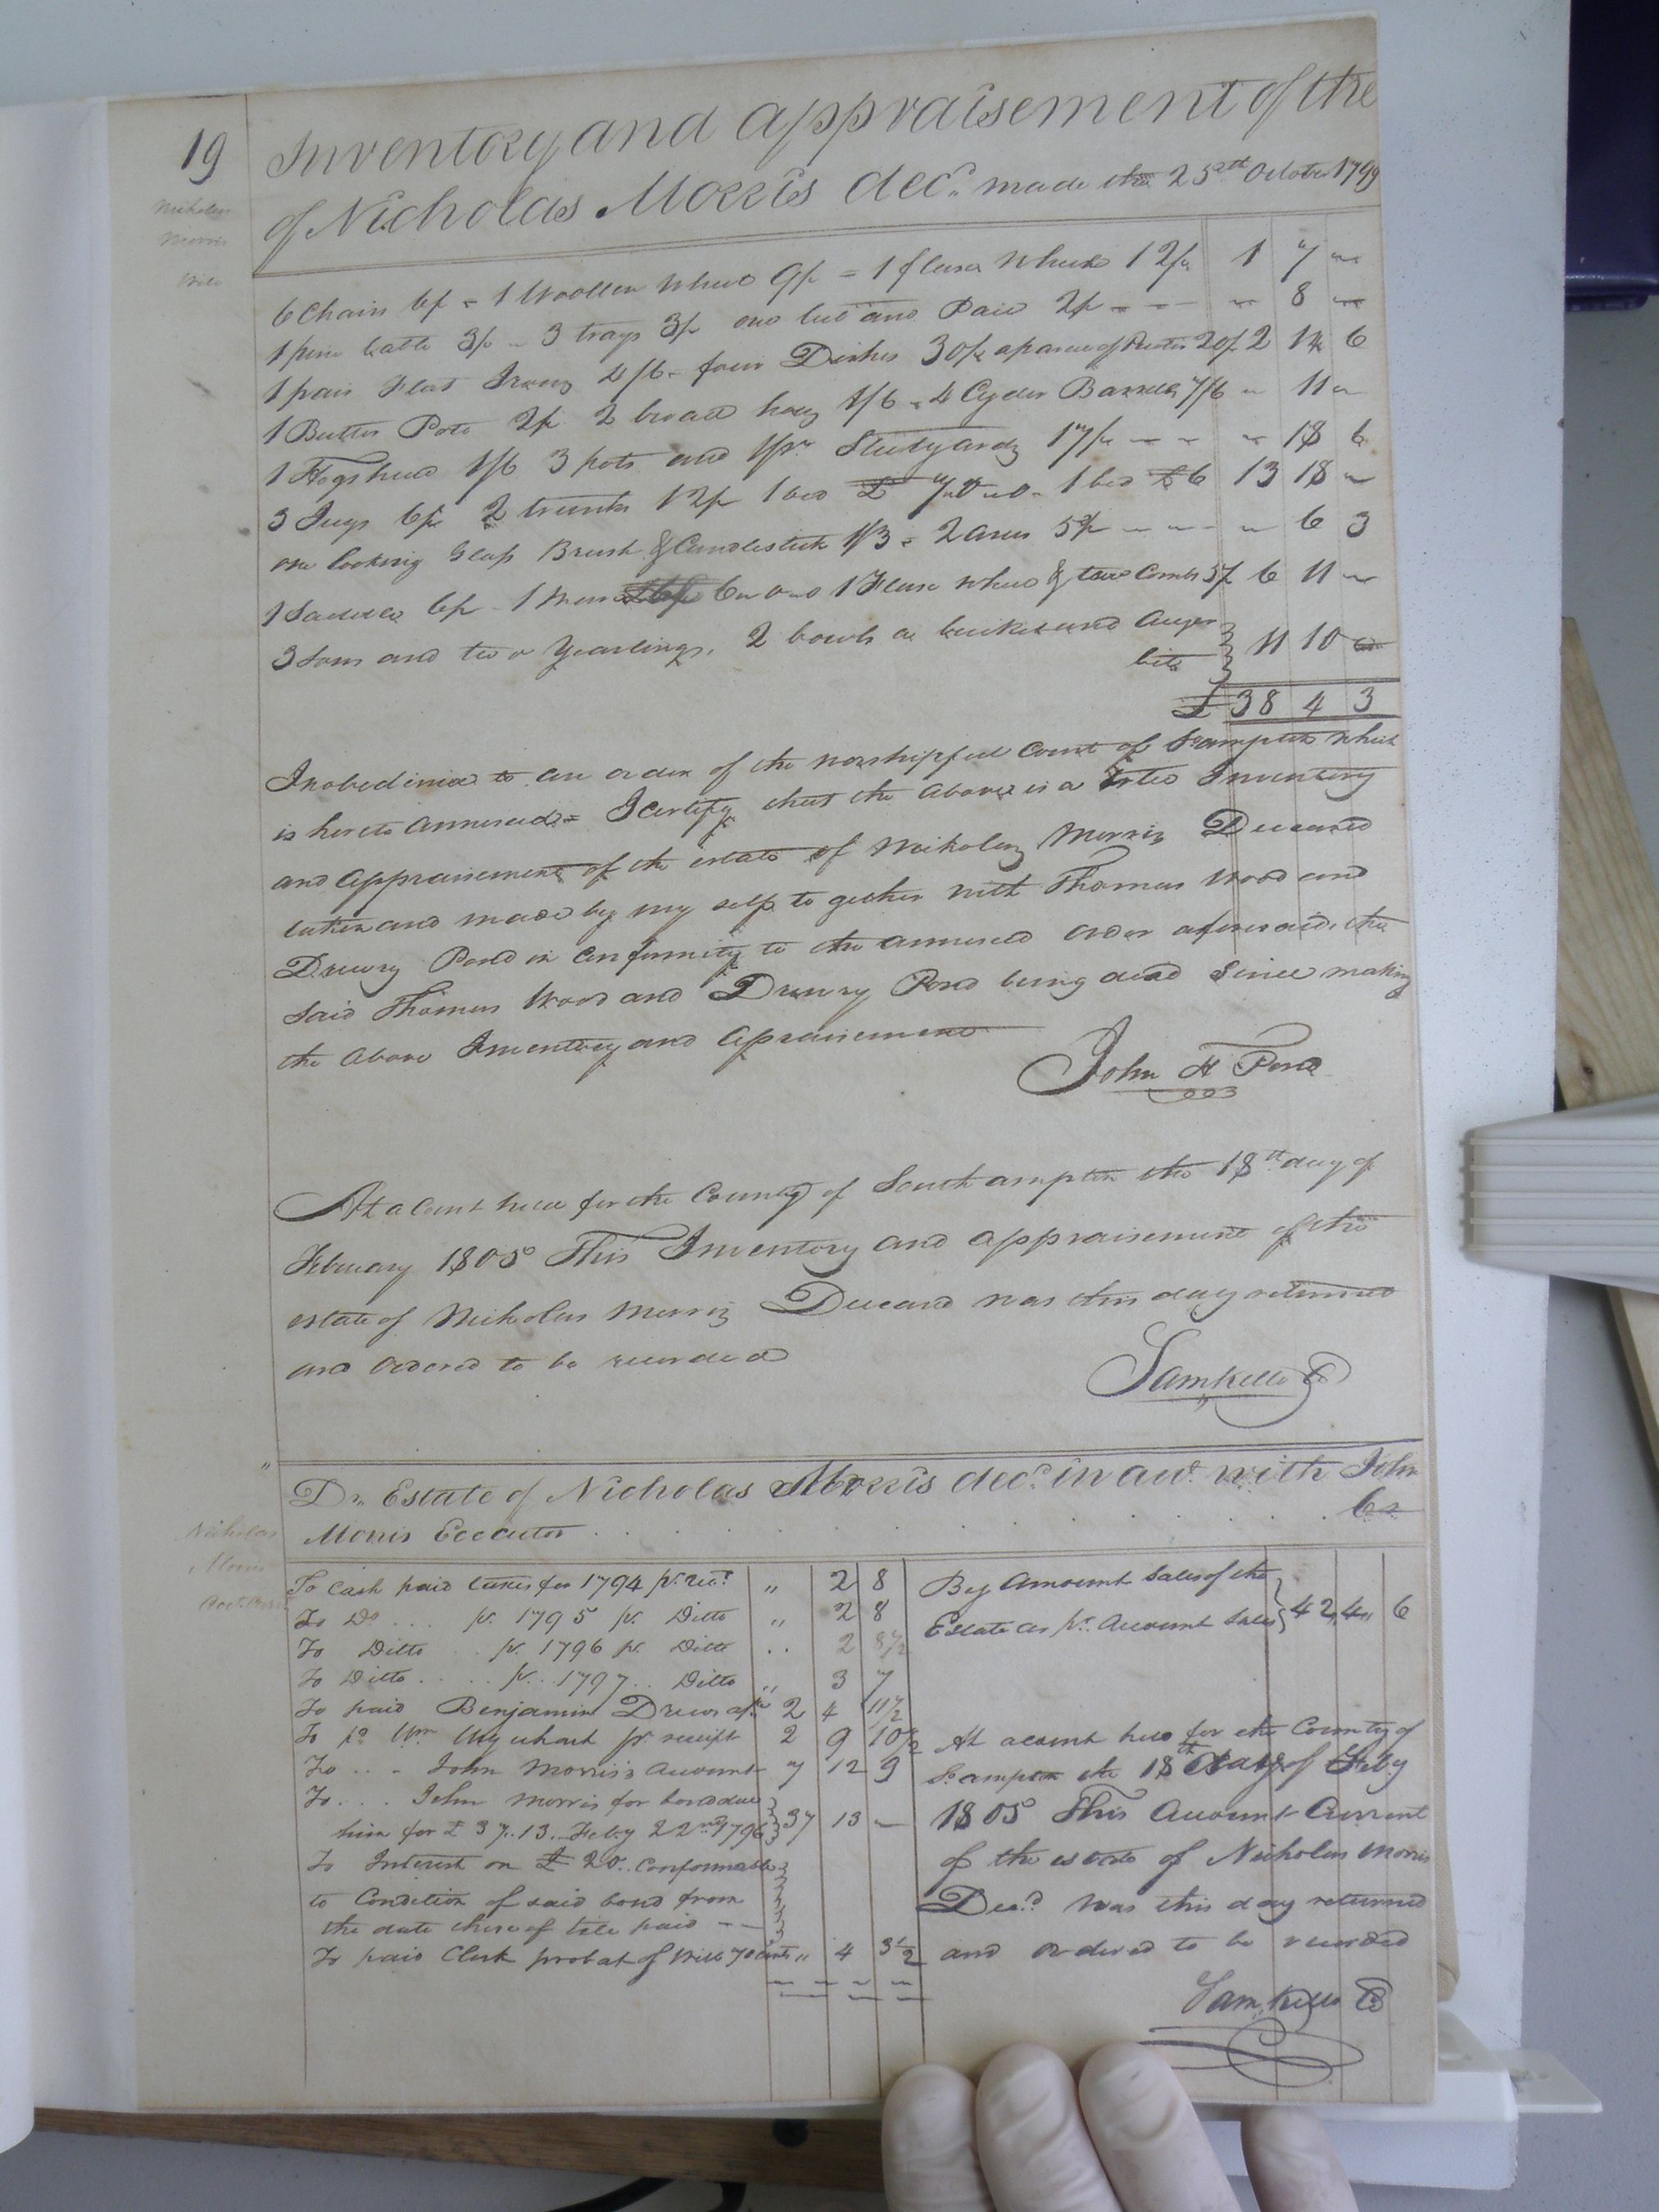 19
Inventory and appraisement of the
of Nicholas Morris decd. made the 25th October 1799
Nicholas
Morris
6 Chairs 6/ = 1 Woollen Wheel 9/ = 1 flax Wheel 12/ 1 7 "
1 pine table 3/ - 3 trays 3/ one tub and Pail 2/ - - - " 8 "
1 pair Flat Irons 4/6 - four Dishes 30/ a parcel of Pewter 20/ 2 14 6
1 Butter Pott 2/ 2 broad hoes 1/6 - 4 Cyder Barrells 7/6 " 11 "
1 Hogshead 1/6 3 pots and 1 pr. Stillyards 17/ - - - " 18 6
3 Jugs 6/ 2 trunks 12/ 1 bed £ 7 " 0 " 0 - 1 bed £6 13 18 "
one looking Glass Brush & Candlestick 1/3 = 2 axes 5/ - - - " 6 3
1 Saddle 6/ - 1 6 " 0 " 0 1 Flax wheel & tow Combs 5/ 6 11 "
3 Sows and two Yearlings, 2 bowls a bucket and auger
bits 11 10 "
£ 38 4 3
In obedience to an order of the worshipfull Court of So.ampton which
is hereto annexed = I certify that the above is a true Inventory
and appraisement of the estate of Nicholas Morris Deceased
taken and made by my self to gether with Thomas Wood and
Drewry Pond in Conformity to the annexed order aforesaid, the
said Thomas Wood and Drewry Pond being dead Since making
the above Inventory and Apraisement
John H Pond
At a Court held for the County of Southampton the 18th day of
February 1805 This Inventory and appraisement of the
estate of Nicholas Morris Deceasd was this day returned
and Ordered to be recorded
Sam Kello C
Dr. Estate of Nicholas Morris decd. in acct. with John
Morris Executor . . . . . . . . . . Cr
Nicholas
Morris
To Cash paid taxes for 1794 pr. rect. " 2 8
To Do . . . pr. 1795 pr. Ditto " 2 8
To Ditto . . pr. 1796 pr. Ditto . . 2 8 1/2
To Ditto . . . . pr. . 1797 . . Ditto " 3 7
To paid Benjamin Drews 2 4 11 1/2
To pd. Wm Urquhart pr. receipt 2 9 10 1/2
To . . . John Morris's account 7 12 9
To . . . John Morris for bond due
him for £ 37..13.. Feby 22nd 1796 37 13 -
To Interest on £ 20.. Conformable
to Condition of said bond from
the date thereof tile paid - -
To paid Clerk probat of Will 70 Cents " 4 3 1/2
By Amount Sales of the
Estate as pr. Account Sales 42 " 4 " 6
At a Court held for the County of
So.ampton the 18th day of Feby
1805 This Account Current
of the estate of Nicholas Morris
Decd. was this day returned
and ordered to be recorded
Sam. Kello C